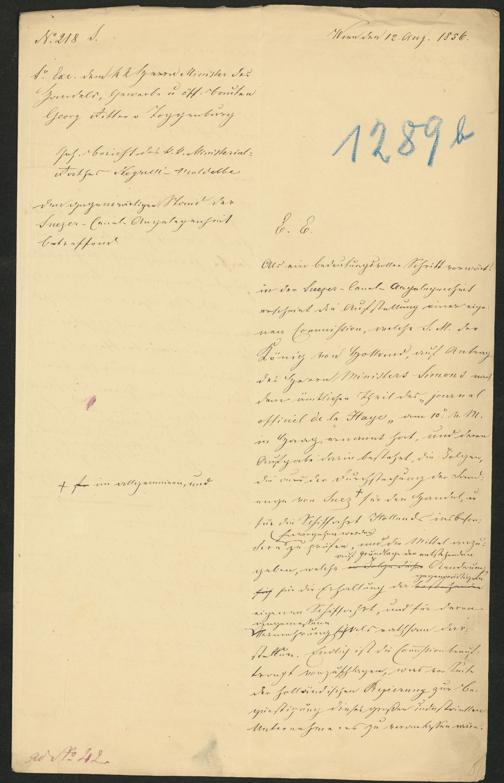 No 218 S.
Wien den 12 Aug. 1856.
Sr. Exc. dem k k Herrn Minister des
Handels, Gewerbe u öff. Bauten
Georg Ritter v Toggenburg
1289 b
Geh. Bericht des k. k. Ministerial-
Rathes
den gegenwärtigen Stand der
Suezer-Canal-Angelegenheit
betreffend
E. E.
Als ein bedeutungsvoller Schritt vorwärts
in der Suezer-Canal-Angelegenheit
erscheint die Aufstellung einer eige-
nen Commission, welche S. M. der
König von Holland, auf Antrag
des Herrn Ministers Simons nach
dem ämtlichen Theil des „Journal
officiel de la Haye" am 10. d. M.
im Haag ernannt hat, und deren
Aufgabe darin besteht, die Folgen,
die aus der Durchstechung der Land-
enge von Suez + für den Handel, u
für die Schiffahrt Hollands insbeson-
+ im allgemeinen, und
dere zu prüfen, und die Mittel anzu-
geben, welche auf Grundlage der entstehenden
für die Erhaltung der gegenwärtigen
eigenen Schiffahrt, und für deren
angemessene
Vermehrung als rathsam dar-
stellen. Endlich ist die Commission beauf-
tragt vorzuschlagen, was von Seite
der holländischen Regierung zur Be-
günstigung dieses großen industriellen
Unternehmens zu veranlassen wäre.
ad No 42